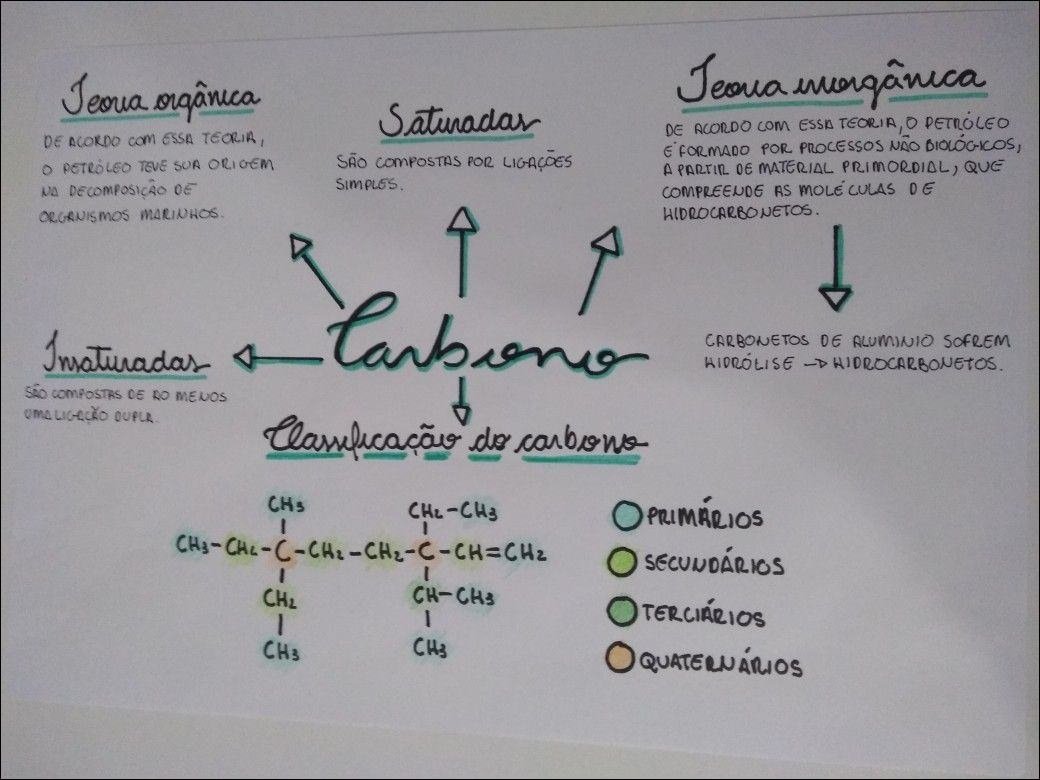 Teoria orgânica
DE ACORDO COM ESSA TEORIA,
O PETRÓLEO TEVE SUA ORIGEM
NA DECOMPOSIÇÃO DE
ORGANISMOS MARINHOS.
Saturadas
SÃO COMPOSTAS POR LIGAÇÕES
SIMPLES.
Teoria inorgânica
DE ACORDO COM ESSA TEORIA, O PETRÓLEO
É FORMADO POR PROCESSOS NÃO BIOLÓGICOS,
A PARTIR DE MATERIAL PRIMORDIAL, QUE
COMPREENDE AS MOLÉCULAS DE
HIDROCARBONETOS.
CARBONETOS DE ALUMINIO SOFREM
HIDRÓLISE → HIDROCARBONETOS.
Carbono
Insaturadas
SÃO COMPOSTAS DE AO MENOS
UMA LIGAÇÃO DUPLA.
Classificação do carbono
CH3 CH2-CH3
CH3-CH2-C-CH2-CH2-C-CH=CH2
CH2 CH-CH3
CH3 CH3
PRIMÁRIOS
SECUNDÁRIOS
TERCIÁRIOS
QUATERNÁRIOS